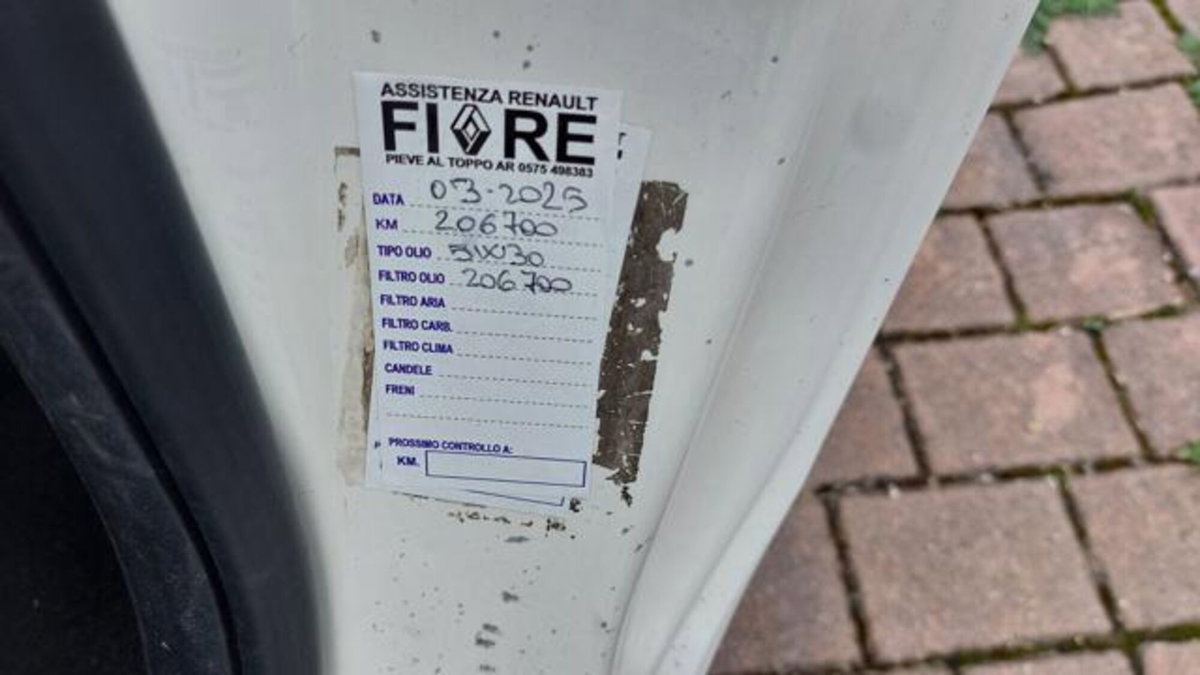 ASSISTENZA RENAULT
FIORE
PIEVE AL TOPPO AR 0575 498383
DATA 03-2025
KM 206700
TIPO OLIO 5W30
FILTRO OLIO 206700
FILTRO ARIA
FILTRO CARB.
FILTRO CLIMA
CANDELE
FRENI
PROSSIMO CONTROLLO A:
KM.